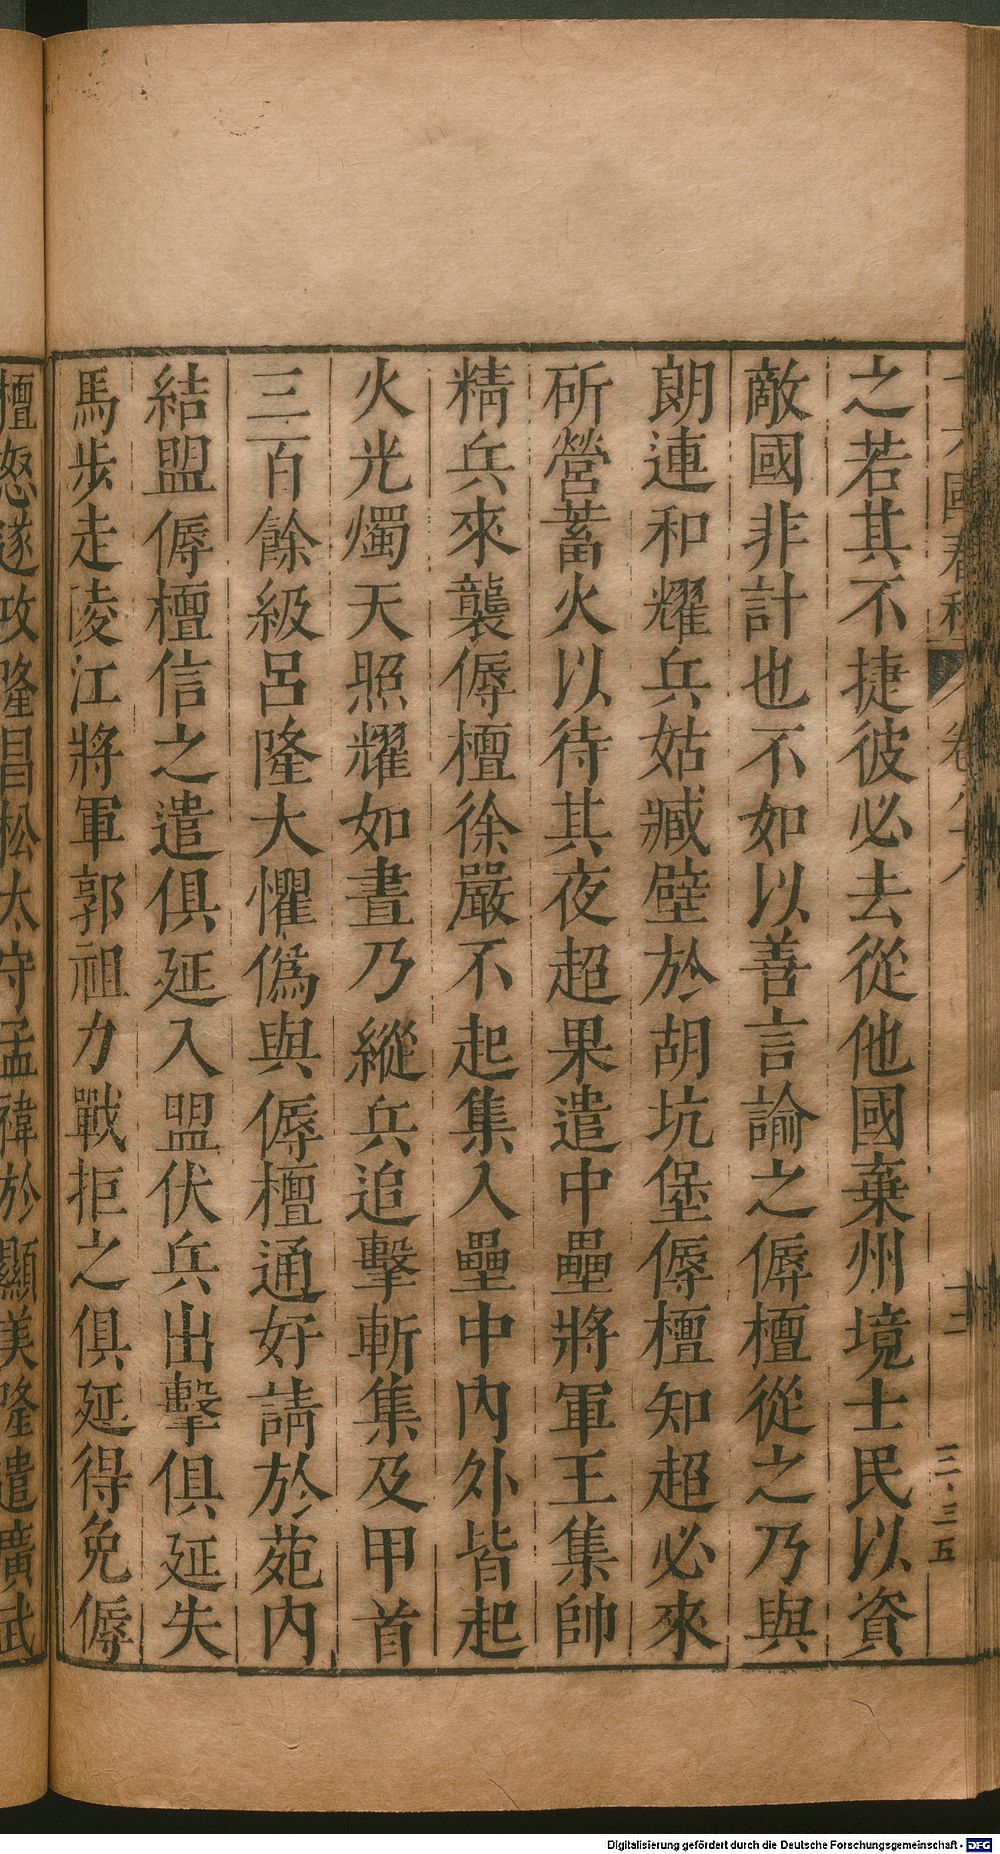 之若其不捷彼必去從他國棄州境士民以資
敵國非計也不如以善言諭之傉檀從之乃與
朗連和耀兵姑臧壁於胡坑堡傉檀知超必來
斫營蓄火以待其夜超果遣中壘將軍王集帥
精兵來襲傉檀徐嚴不起集入壘中内外皆起
火光燭天照耀如晝乃縱兵追擊斬集及甲首
三百餘級呂隆大懼僞與傉檀通好請於苑内
結盟傉檀信之遣俱延入盟伏兵出擊俱延失
馬步走陵江將軍郭祖力戰拒之俱延得免傉
檀怒遂攻隆昌松太守孟禕於顯美隆遣廣武
Digitalisierung gefördert durch die Deutsche Forschungsgemeinschaft - DFG